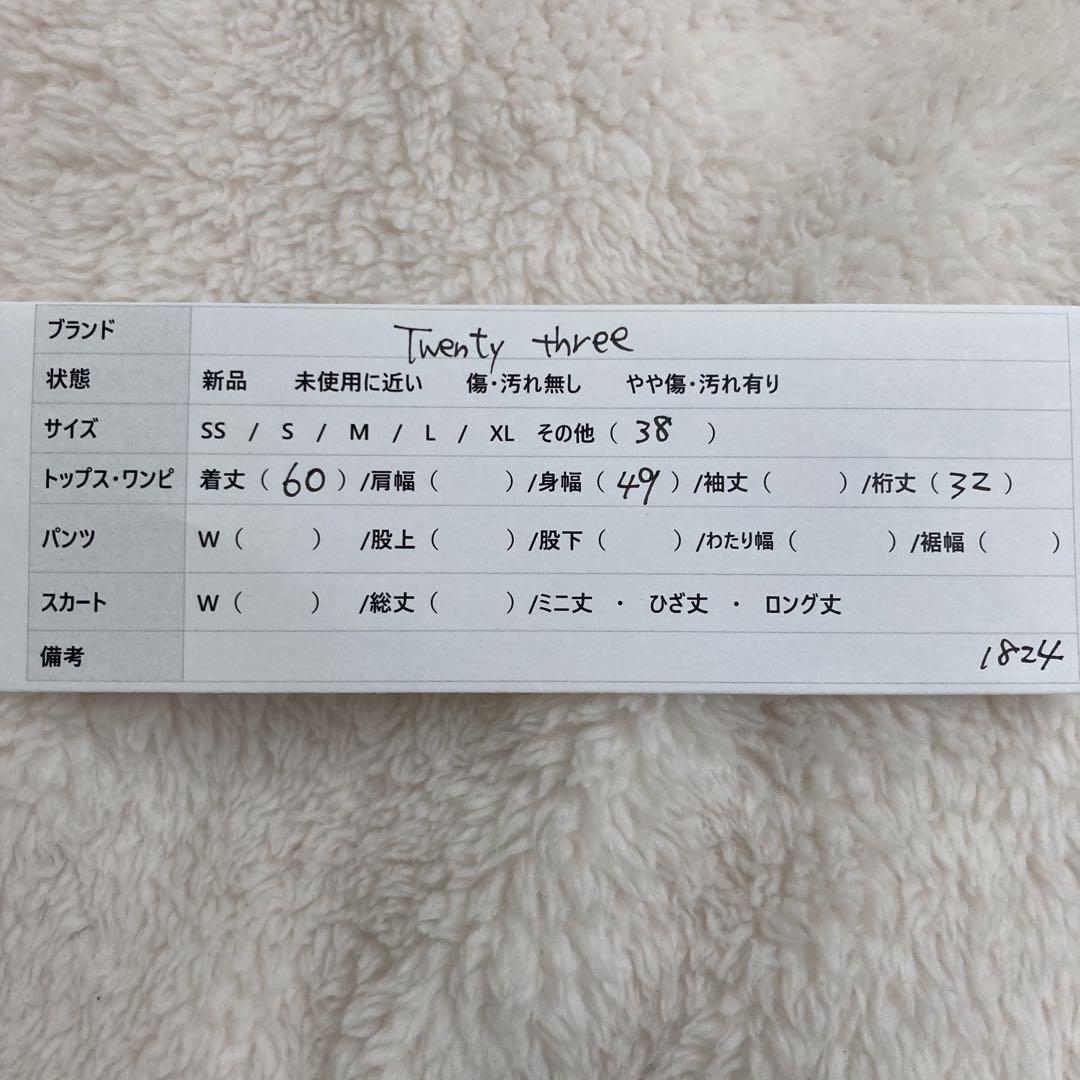 ブランド Twenty three
状態 新品 未使用に近い 傷・汚れ無し やや傷・汚れ有り
サイズ SS / S / M / L / XL その他（ 38 ）
トップス・ワンピ 着丈（ 60 ）/肩幅（ ）/身幅（ 49 ）/袖丈（ ）/裄丈（ 32 ）
パンツ W（ ） /股上（ ）/股下（ ）/わたり幅（ ）/裾幅（ ）
スカート W（ ） /総丈（ ）/ミニ丈 ・ ひざ丈 ・ ロング丈
備考 1824